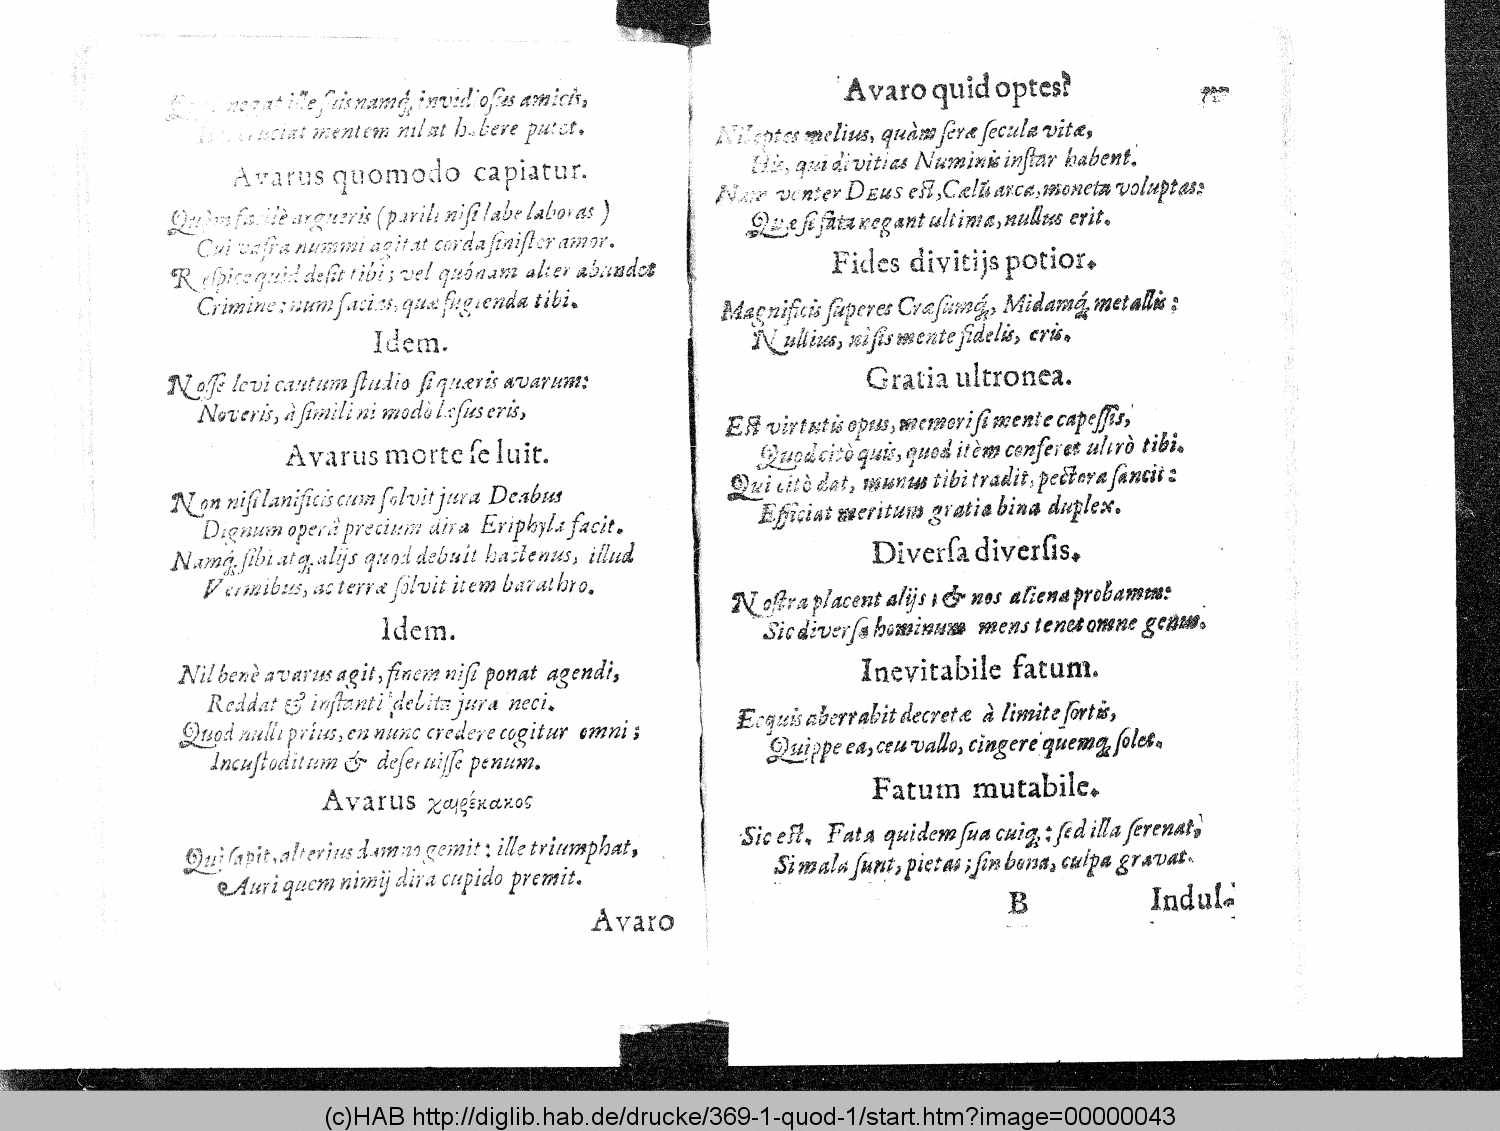 negat ille suis namq́, invidiosus amicis,
mentem nil at habere putet.
Avarus quomodo capiatur.
Quàm facilè argueris (parili nisi labe laboras )
Cui vafra nummi agitat corda sinister amor.
Respice quid desit tibi; vel quónam alter abundet
Crimine: num facias, quæ fugienda tibi.
Idem.
Nosse levi cautum studio si quæris avarum:
Noveris, à simili ni modò læsus eris,
Avarus morte se luit.
Non nisi lanificis cum solvit jura Deabus
Dignum operâ precium dira Eriphyla facit.
Namq́, sibi atq, alijs quod debuit hactenus, illud
Vermibus, ac terræ solvit item barathro.
Idem.
Nil benè avarus agit, finem nisi ponat agendi,
Reddat & instanti debita jura neci.
Quod nulli prius, en nunc credere cogitur omni;
Incustoditum & deseruisse penum.
Avarus χαιρέκακος
Qui sapit, alterius damno gemit: ille triumphat,
Auri quem nimij dira cupido premit.
Avaro
Avaro quid optes?
Nil optes melius, quàm seræ secula vitæ,
His, qui divitias Numinis instar habent.
Nam venter DEUS est, Cælũ arca, moneta voluptas:
Quæ si fata negant ultima, nullus erit.
Fides divitijs potior.
Magnificis superes Cræsumq́, Midamq́, metallis:
Nullius, nisi mente fidelis, eris.
Gratia ultronea.
Est virtutis opus, memori si mente capessis,
Quod citò quis, quod itèm conferet ultrò tibi.
Qui citò dat, munus tibi tradit, pectora sancit:
Efficiat meritum gratia bina duplex.
Diversa diversis.
Nostra placent alijs; & nos aliena probamus:
Sic diversa hominum mens tenet omne genus.
Inevitabile fatum.
Ecquis aberrabit decretæ à limite sortis,
Quippe ea, ceu vallo, cingere quemq, solet.
Fatum mutabile.
Sic est. Fata quidem sua cuiq,: sed illa serenat,
Si mala sunt, pietas; sin bona, culpa gravat.
B Indul-
(c)HAB http://diglib.hab.de/drucke/369-1-quod-1/start.htm?image=00000043